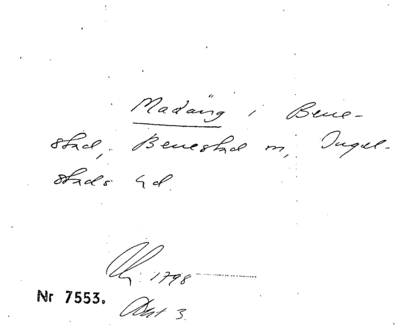 Madäng i Bene-
stad, Benestad m, Ingel-
stads hd.
1798
Nr 7553. Akt 3